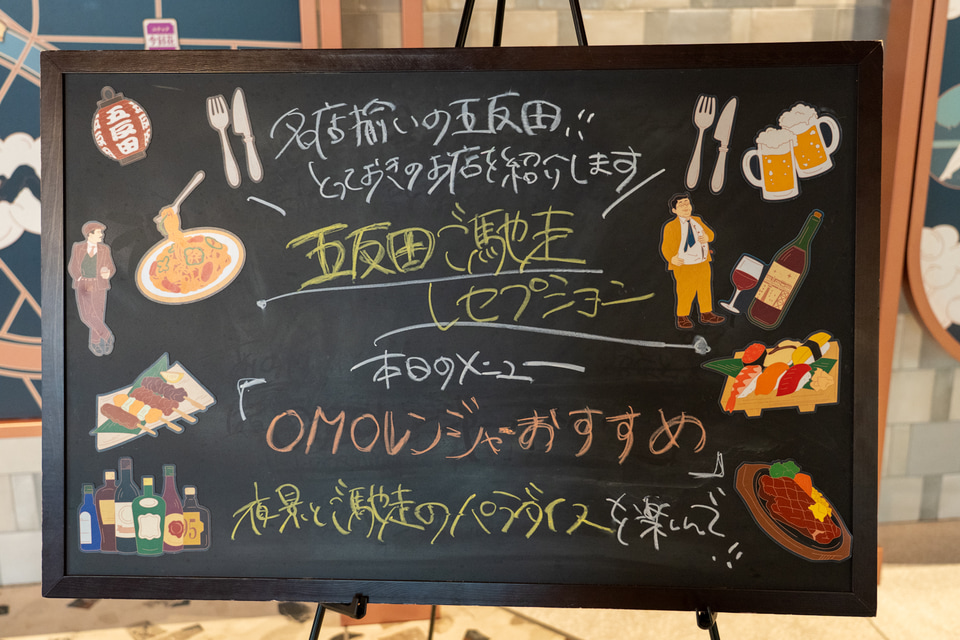 五反田
名店揃いの五反田
とっておきのお店を紹介します
五反田ご馳走
レセプション
本日のメニュー
「OMOレンジャーおすすめ」
夜景とご馳走のパラダイスを楽しんで